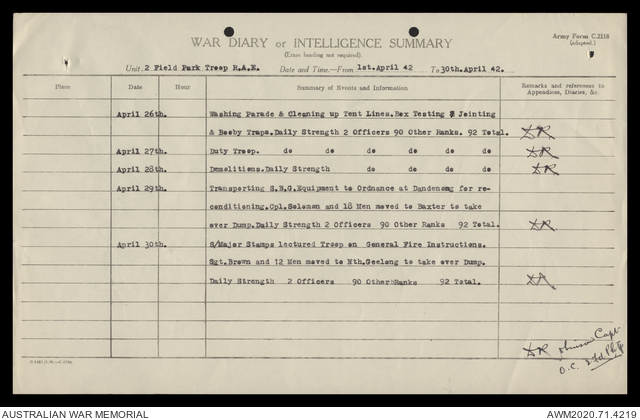 WAR DIARY or INTELLIGENCE SUMMARY
(Erase heading not required).
Army Form C.2118
(adapted.)
Unit 2 Field Park Troop R.A.E. Date and Time—From 1st.April 42 To 30th.April 42.
Place Date Hour Summary of Events and Information Remarks and references to Appendices, Diaries, &c.
April 26th. Washing Parade & Cleaning up Tent Lines.Box Testing & Jointing
& Booby Traps.Daily Strength 2 Officers 90 Other Ranks. 92 Total.
April 27th. Duty Troop. do do do do do do
April 28th. Demolitions.Daily Strength do do do do
April 29th. Transporting S.B.G.Equipment to Ordnance at Dandenong for re-
conditioning.Cpl.Solomon and 18 Men moved to Baxter to take
over Dump.Daily Strength 2 Officers 90 Other Ranks 92 Total.
April 30th. S/Major Stamps lectured Troop on General Fire Instructions.
Sgt.Brown and 12 Men moved to Nth.Geelong to take over Dump.
Daily Strength 2 Officers 90 Other Ranks 92 Total.
Johnson Capt
O.C. 2 Fd Pk Tp
AUSTRALIAN WAR MEMORIAL AWM2020.71.4219